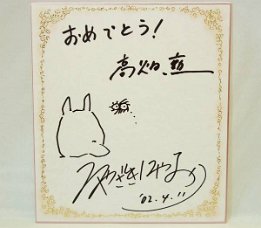 おめでとう!
高畑勲
みやざきはやお
'02.4.11